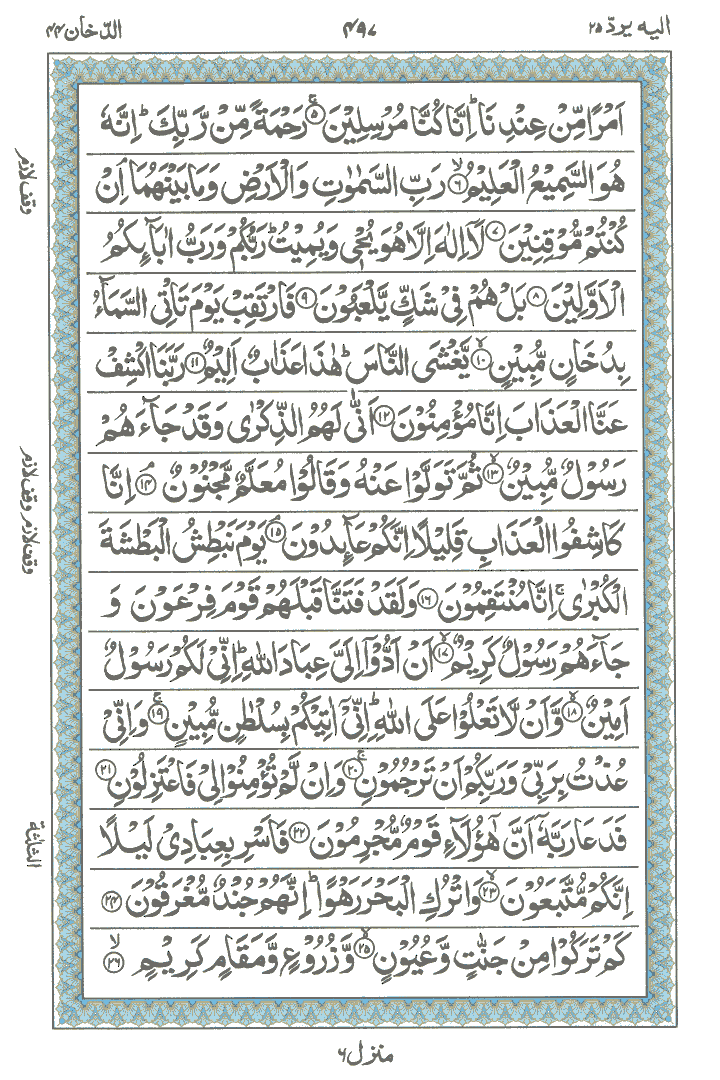 الیه یردّ ۲۵
۴۹۷
الدّخان ۴۴
اَمْرًا مِّنْ عِنْدِنَا ؕ اِنَّا كُنَّا مُرْسِلِیْنَ ۚ﴿۵﴾ رَحْمَةً مِّنْ رَّبِّكَ ؕ اِنَّهٗ
هُوَ السَّمِیْعُ الْعَلِیْمُ ۙ﴿۶﴾ رَبِّ السَّمٰوٰتِ وَ الْاَرْضِ وَ مَا بَیْنَهُمَا ۘ اِنْ
كُنْتُمْ مُّوْقِنِیْنَ ﴿۷﴾ لَاۤ اِلٰهَ اِلَّا هُوَ یُحْیٖ وَ یُمِیْتُ ؕ رَبُّكُمْ وَ رَبُّ اٰبَآىِٕكُمُ
الْاَوَّلِیْنَ ﴿۸﴾ بَلْ هُمْ فِیْ شَكٍّ یَّلْعَبُوْنَ ﴿۹﴾ فَارْتَقِبْ یَوْمَ تَاْتِی السَّمَآءُ
بِدُخَانٍ مُّبِیْنٍ ۙ﴿۱۰﴾ یَّغْشَی النَّاسَ ؕ هٰذَا عَذَابٌ اَلِیْمٌ ﴿۱۱﴾ رَبَّنَا اكْشِفْ
عَنَّا الْعَذَابَ اِنَّا مُؤْمِنُوْنَ ﴿۱۲﴾ اَنّٰی لَهُمُ الذِّكْرٰی وَ قَدْ جَآءَهُمْ
رَسُوْلٌ مُّبِیْنٌ ۙ﴿۱۳﴾ ثُمَّ تَوَلَّوْا عَنْهُ وَ قَالُوْا مُعَلَّمٌ مَّجْنُوْنٌ ۘ﴿۱۴﴾ اِنَّا
كَاشِفُوا الْعَذَابِ قَلِیْلًا اِنَّكُمْ عَآىِٕدُوْنَ ۘ﴿۱۵﴾ یَوْمَ نَبْطِشُ الْبَطْشَةَ
الْكُبْرٰی ۚ اِنَّا مُنْتَقِمُوْنَ ﴿۱۶﴾ وَ لَقَدْ فَتَنَّا قَبْلَهُمْ قَوْمَ فِرْعَوْنَ وَ
جَآءَهُمْ رَسُوْلٌ كَرِیْمٌ ۙ﴿۱۷﴾ اَنْ اَدُّوْۤا اِلَیَّ عِبَادَ اللّٰهِ ؕ اِنِّیْ لَكُمْ رَسُوْلٌ
اَمِیْنٌ ۙ﴿۱۸﴾ وَّ اَنْ لَّا تَعْلُوْا عَلَی اللّٰهِ ؕ اِنِّیْۤ اٰتِیْكُمْ بِسُلْطٰنٍ مُّبِیْنٍ ۚ﴿۱۹﴾ وَ اِنِّیْ
عُذْتُ بِرَبِّیْ وَ رَبِّكُمْ اَنْ تَرْجُمُوْنِ ؗ﴿۲۰﴾ وَ اِنْ لَّمْ تُؤْمِنُوْا لِیْ فَاعْتَزِلُوْنِ ﴿۲۱﴾
فَدَعَا رَبَّهٗۤ اَنَّ هٰۤؤُلَآءِ قَوْمٌ مُّجْرِمُوْنَ ﴿۲۲﴾ فَاَسْرِ بِعِبَادِیْ لَیْلًا
اِنَّكُمْ مُّتَّبَعُوْنَ ۙ﴿۲۳﴾ وَ اتْرُكِ الْبَحْرَ رَهْوًا ؕ اِنَّهُمْ جُنْدٌ مُّغْرَقُوْنَ ﴿۲۴﴾
كَمْ تَرَكُوْا مِنْ جَنّٰتٍ وَّ عُیُوْنٍ ۙ﴿۲۵﴾ وَّ زُرُوْعٍ وَّ مَقَامٍ كَرِیْمٍ ۙ﴿۲۶﴾
وقف لازم
وقف لازم وقف لازم
الثلثة
منزل ۶